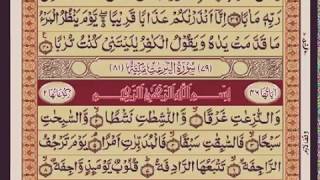 رَبِّهٖ مَاٰبًا ۝ اِنَّاۤ اَنْذَرْنٰكُمْ عَذَابًا قَرِيْبًا ۚۖ يَّوْمَ يَنْظُرُ الْمَرْءُ
مَا قَدَّمَتْ يَدٰهُ وَيَقُوْلُ الْكٰفِرُ يٰلَيْتَنِيْ كُنْتُ تُرٰبًا ۝
(٧٩) سُوْرَةُ النّٰزِعٰتِ مَكِّيَّةٌ (٨١)
اٰيَاتُهَا ٤٦ بِسْمِ اللّٰهِ الرَّحْمٰنِ الرَّحِيْمِ رُكُوْعَاتُهَا ٢
وَالنّٰزِعٰتِ غَرْقًا ۝ وَّالنّٰشِطٰتِ نَشْطًا ۝ وَّالسّٰبِحٰتِ
سَبْحًا ۝ فَالسّٰبِقٰتِ سَبْقًا ۝ فَالْمُدَبِّرٰتِ اَمْرًا ۝ يَوْمَ تَرْجُفُ
الرَّاجِفَةُ ۝ تَتْبَعُهَا الرَّادِفَةُ ۝ قُلُوْبٌ يَّوْمَئِذٍ وَّاجِفَةٌ ۝
وقف لازم